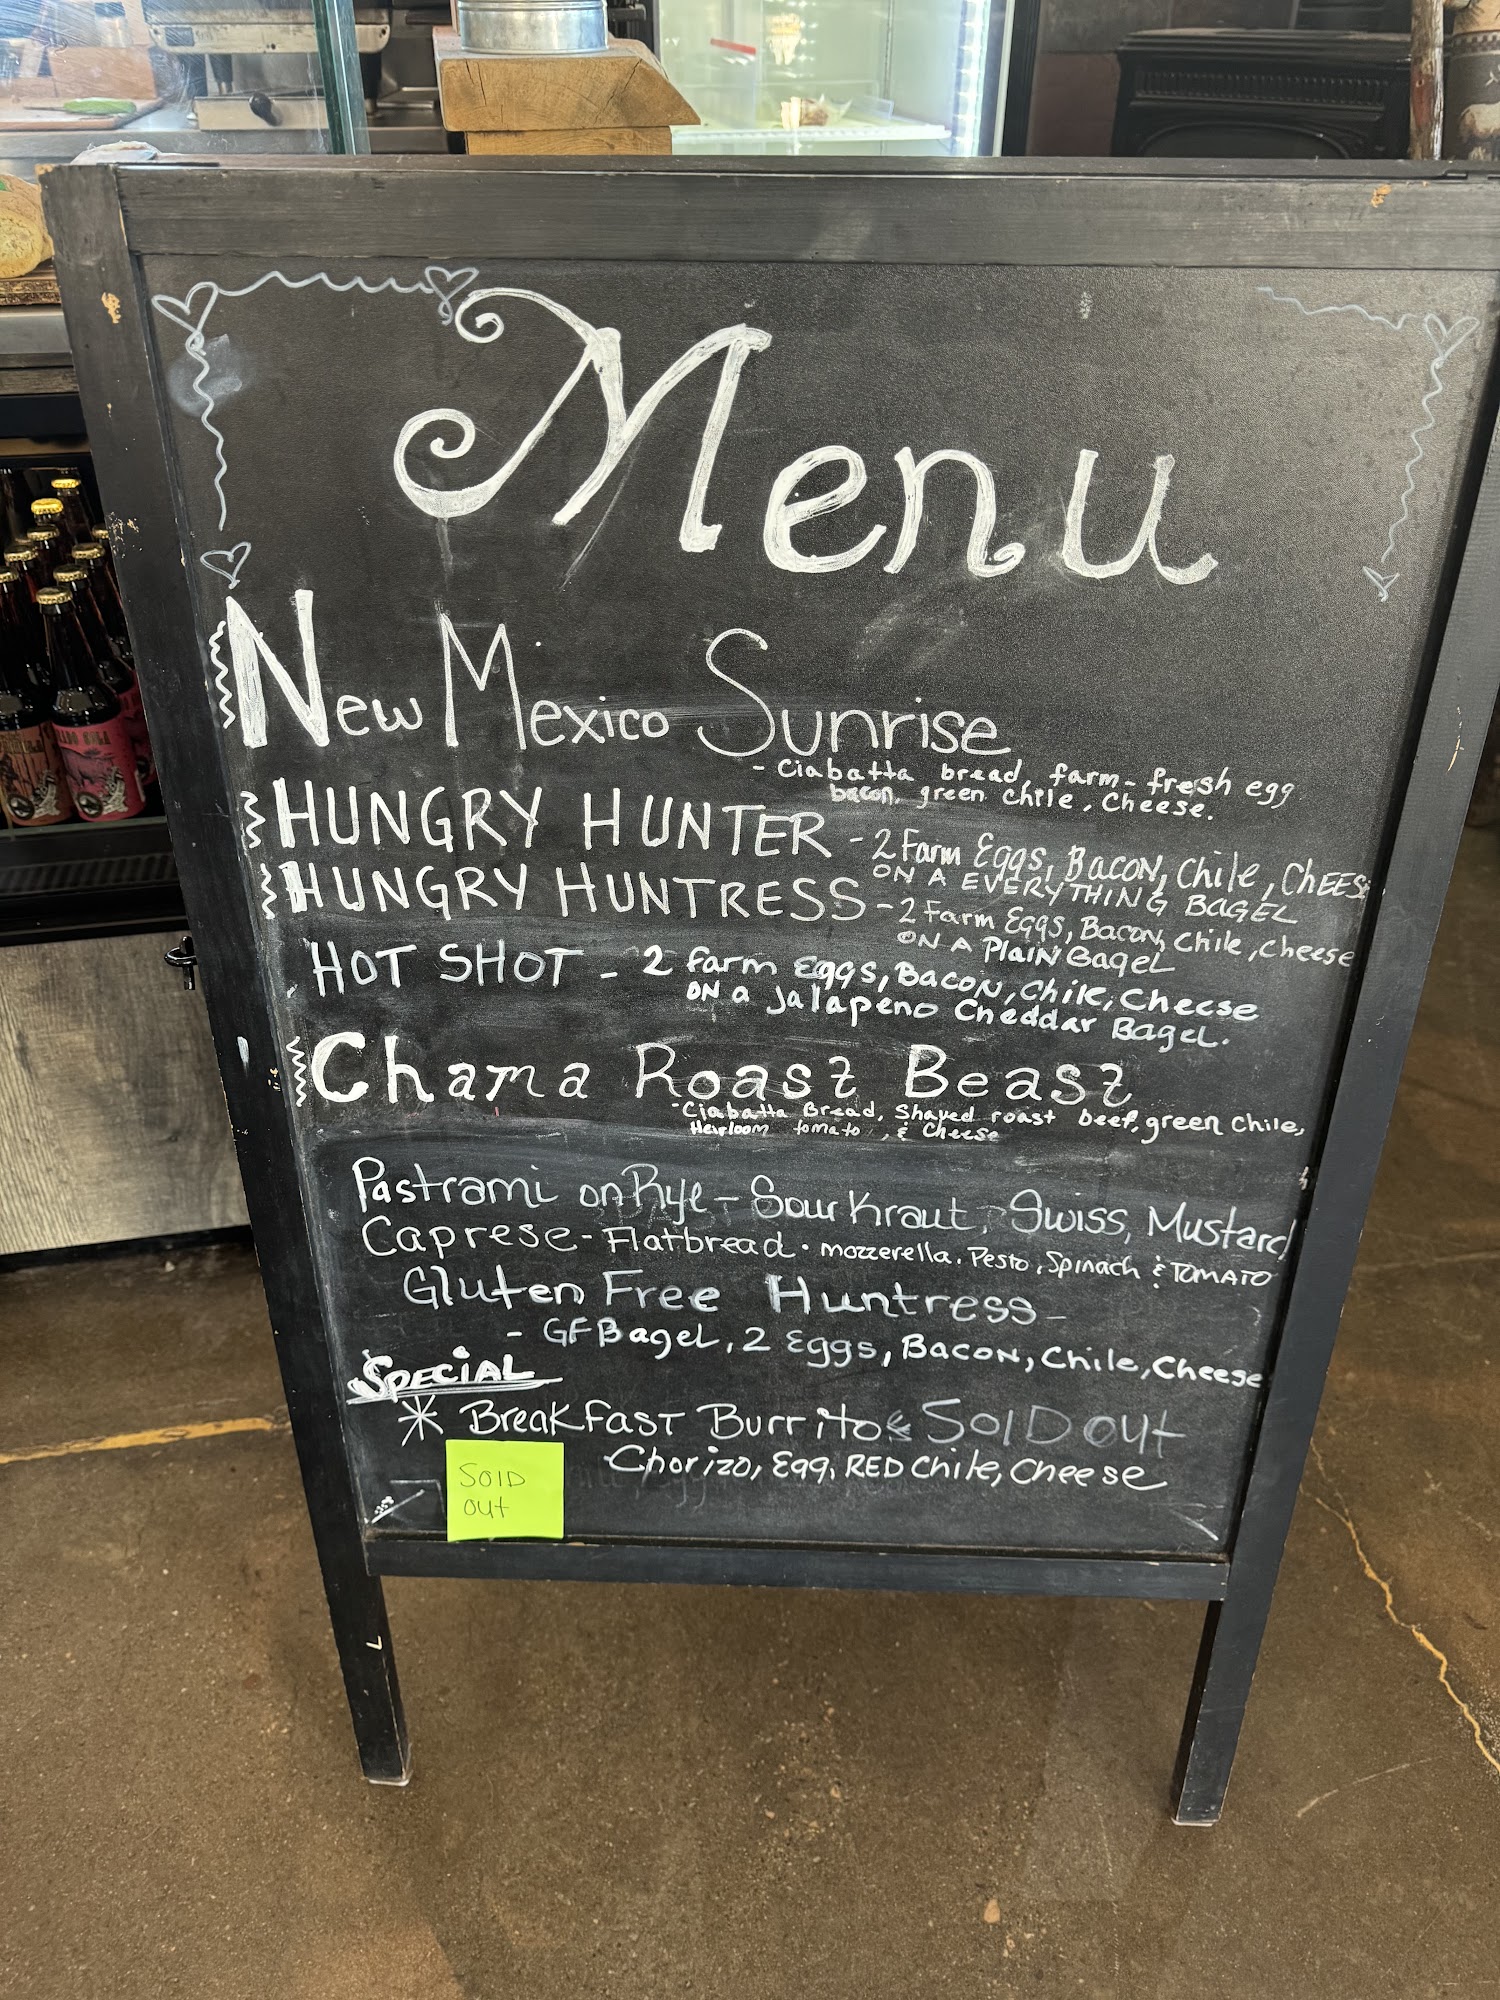 Menu
New Mexico Sunrise
- Ciabatta bread, farm-fresh egg
bacon, green chile, cheese.
HUNGRY HUNTER - 2 Farm Eggs, Bacon, Chile, CHEESE
ON A EVERYTHING BAGEL
HUNGRY HUNTRESS - 2 Farm Eggs, Bacon, Chile, Cheese
ON A PlaiN BageL
HOT SHOT - 2 farm Eggs, Bacon, Chile, Cheese
ON a Jalapeno Cheddar Bagel.
Chama Roast Beast
- Ciabatta Bread, Shaved roast beef, green Chile,
Heirloom tomato, & Cheese
Pastrami on Rye - Sour Kraut, Swiss, Mustard
Caprese - Flatbread. mozzerella. Pesto, Spinach & TOMATO
Gluten Free Huntress -
- GF Bagel, 2 Eggs, Bacon, Chile, Cheese
SPECIAL
* Breakfast Burrito SolD out
Chorizo, Egg, RED Chile, Cheese
SolD
out